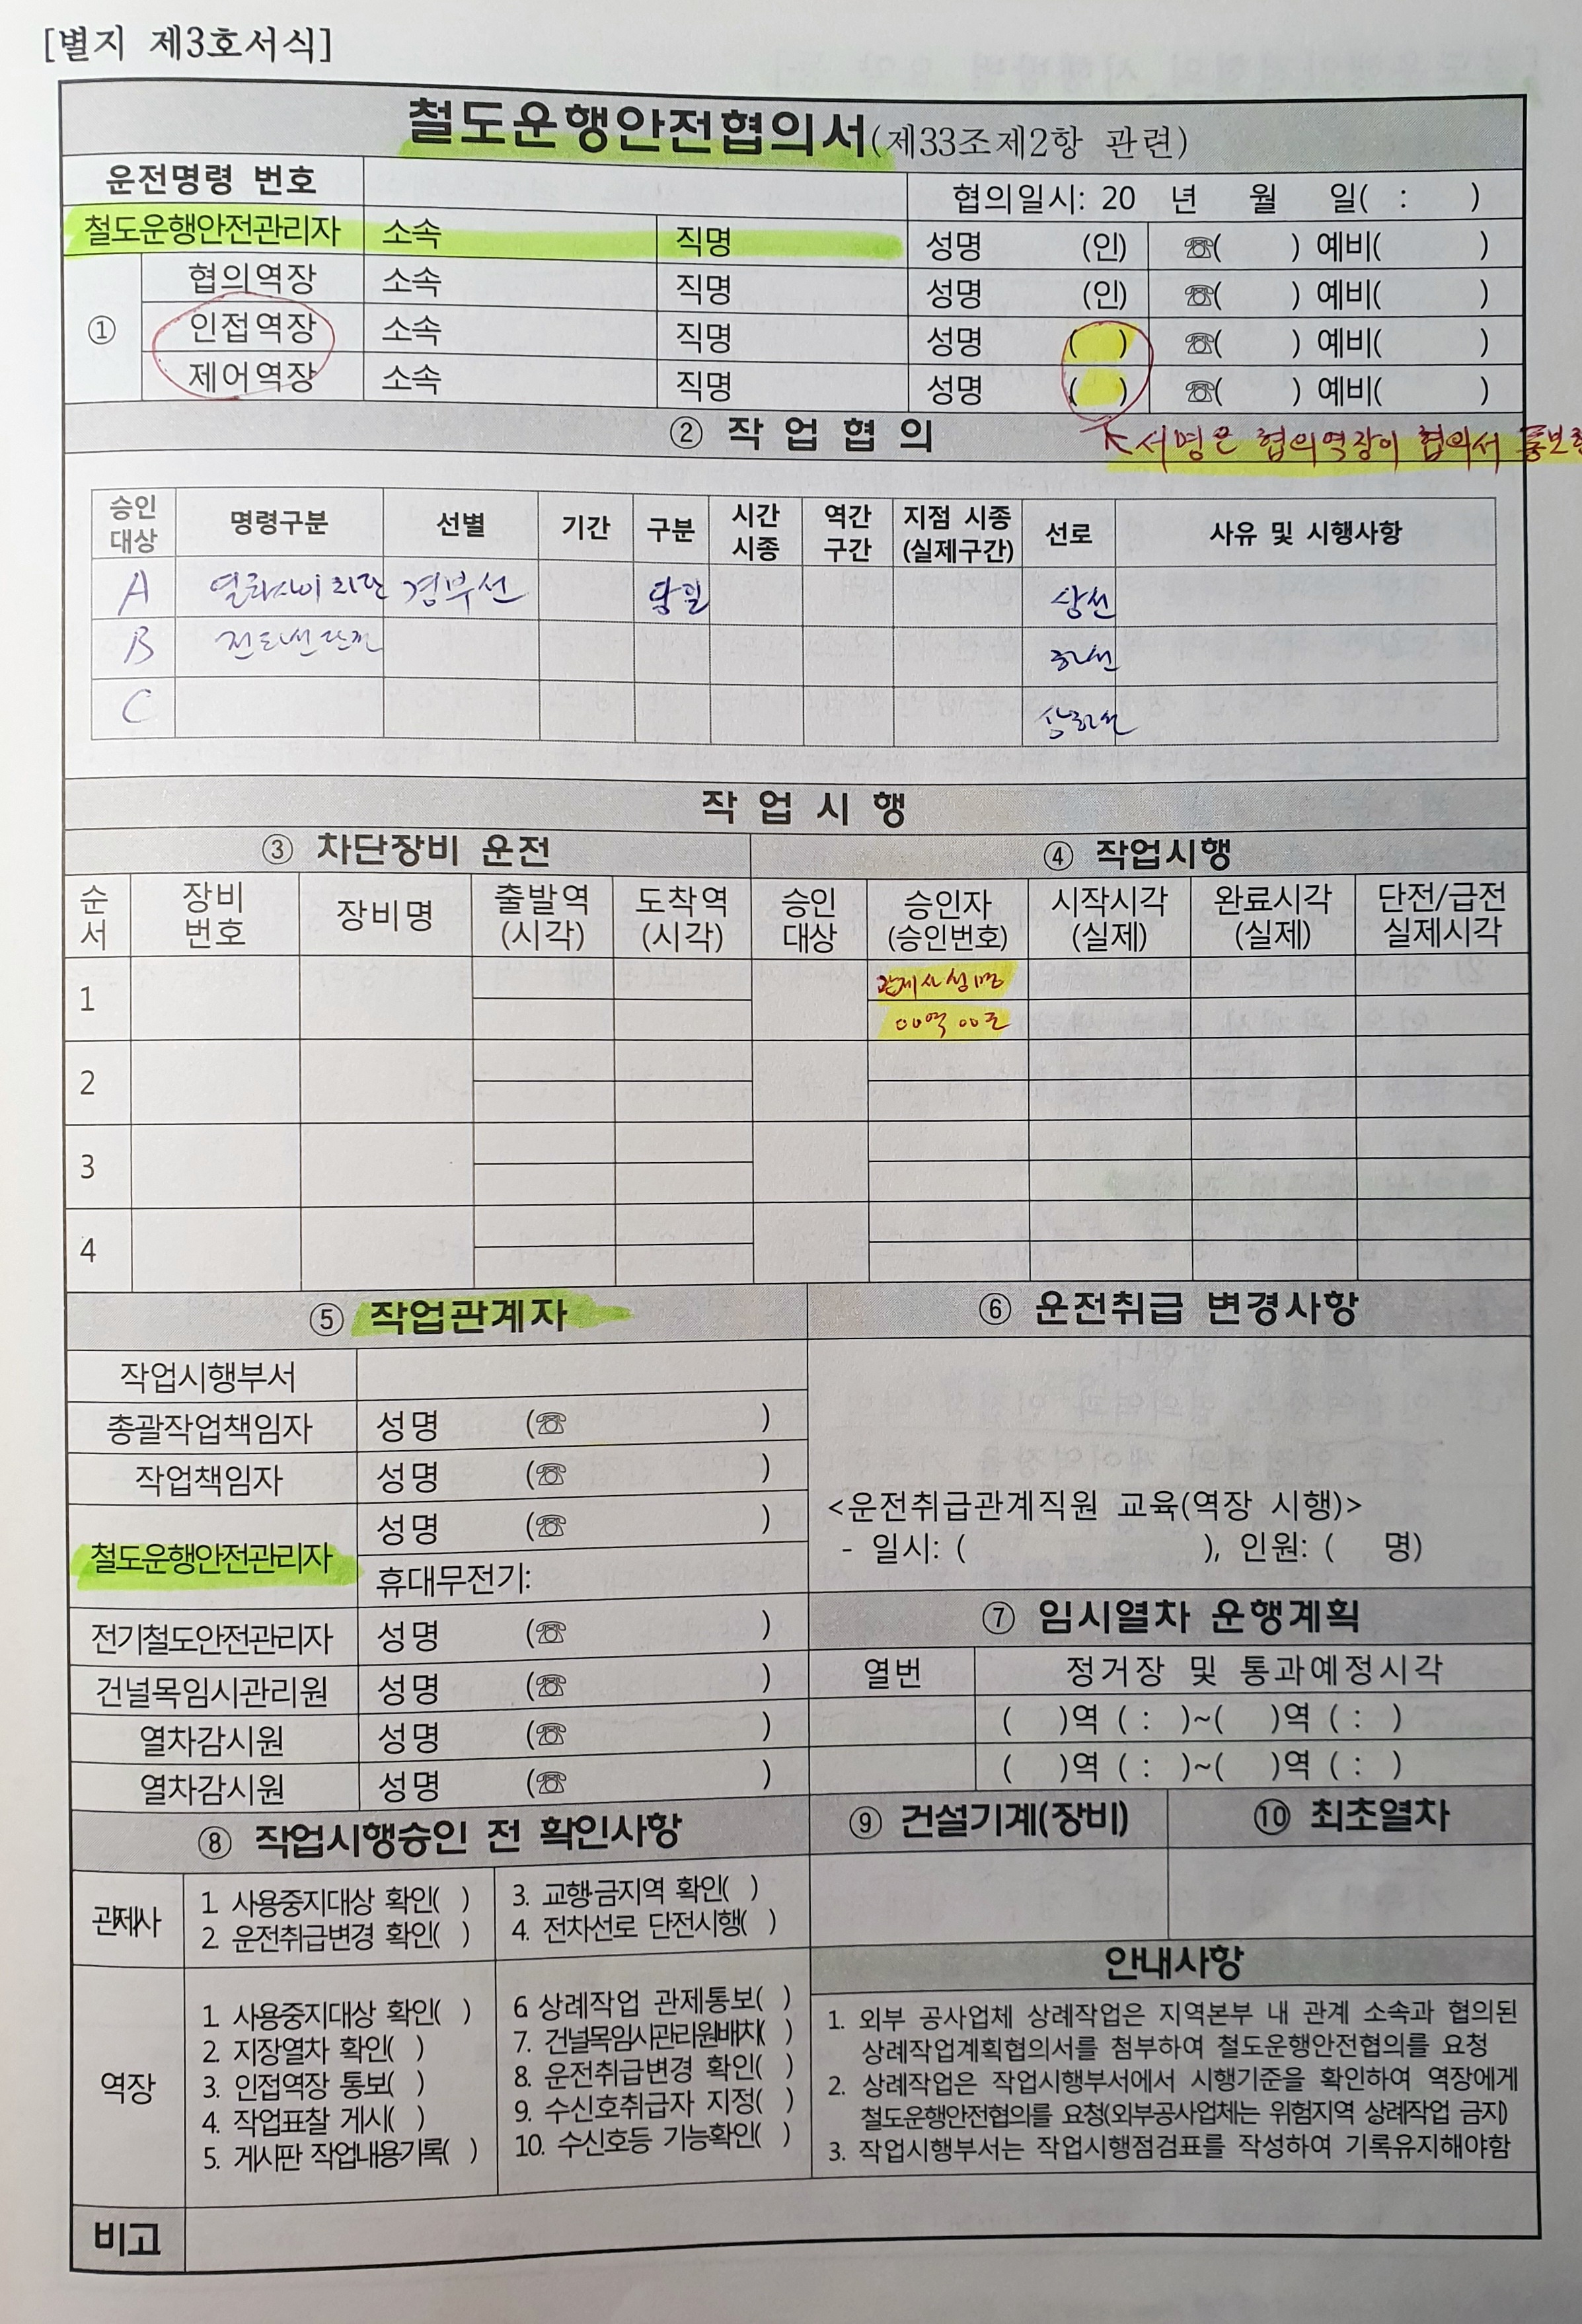 [별지 제3호서식]
철도운행안전협의서(제33조제2항 관련)
운전명령 번호 협의일시: 20 년 월 일( : )
철도운행안전관리자 소속 직명 성명 (인) ☏( ) 예비( )
① 협의역장 소속 직명 성명 (인) ☏( ) 예비( )
인접역장 소속 직명 성명 ( ) ☏( ) 예비( )
제어역장 소속 직명 성명 ( ) ☏( ) 예비( )
② 작 업 협 의
서명은 협의역장이 협의서 통보
승인 대상 명령구분 선별 기간 구분 시간 시종 역간 구간 지점 시종 (실제구간) 선로 사유 및 시행사항
A 경부선 당일 상선
B 하선
C 상하선
작 업 시 행
③ 차단장비 운전 ④ 작업시행
순서 장비 번호 장비명 출발역 (시각) 도착역 (시각) 승인 대상 승인자 (승인번호) 시작시각 (실제) 완료시각 (실제) 단전/급전 실제시각
1 관제사 성명
00역 00로
2
3
4
⑤ 작업관계자
작업시행부서
총괄작업책임자 성명 (☏ )
작업책임자 성명 (☏ )
철도운행안전관리자 성명 (☏ )
휴대무전기:
전기철도안전관리자 성명 (☏ )
건널목임시관리원 성명 (☏ )
열차감시원 성명 (☏ )
열차감시원 성명 (☏ )
⑥ 운전취급 변경사항
<운전취급관계직원 교육(역장 시행)>
- 일시: ( ), 인원: ( 명)
⑦ 임시열차 운행계획
열번 정거장 및 통과예정시각
( )역 ( : )~( )역 ( : )
( )역 ( : )~( )역 ( : )
⑧ 작업시행승인 전 확인사항
관제사
1. 사용중지대상 확인( )
2. 운전취급변경 확인( )
3. 교행금지역 확인( )
4. 전차선로 단전시행( )
역장
1. 사용중지대상 확인( )
2. 지장열차 확인( )
3. 인접역장 통보( )
4. 작업표찰 게시( )
5. 게시판 작업내용기록( )
6. 상례작업 관제통보( )
7. 건널목임시관리원배치( )
8. 운전취급변경 확인( )
9. 수신호취급자 지정( )
10. 수신호등 기능확인( )
⑨ 건설기계(장비) ⑩ 최초열차
안내사항
1. 외부 공사업체 상례작업은 지역본부 내 관계 소속과 협의된
상례작업계획협의서를 첨부하여 철도운행안전협의를 요청
2. 상례작업은 작업시행부서에서 시행기준을 확인하여 역장에게
철도운행안전협의를 요청(외부공사업체는 위험지역 상례작업 금지)
3. 작업시행부서는 작업시행점검표를 작성하여 기록유지해야함
비고